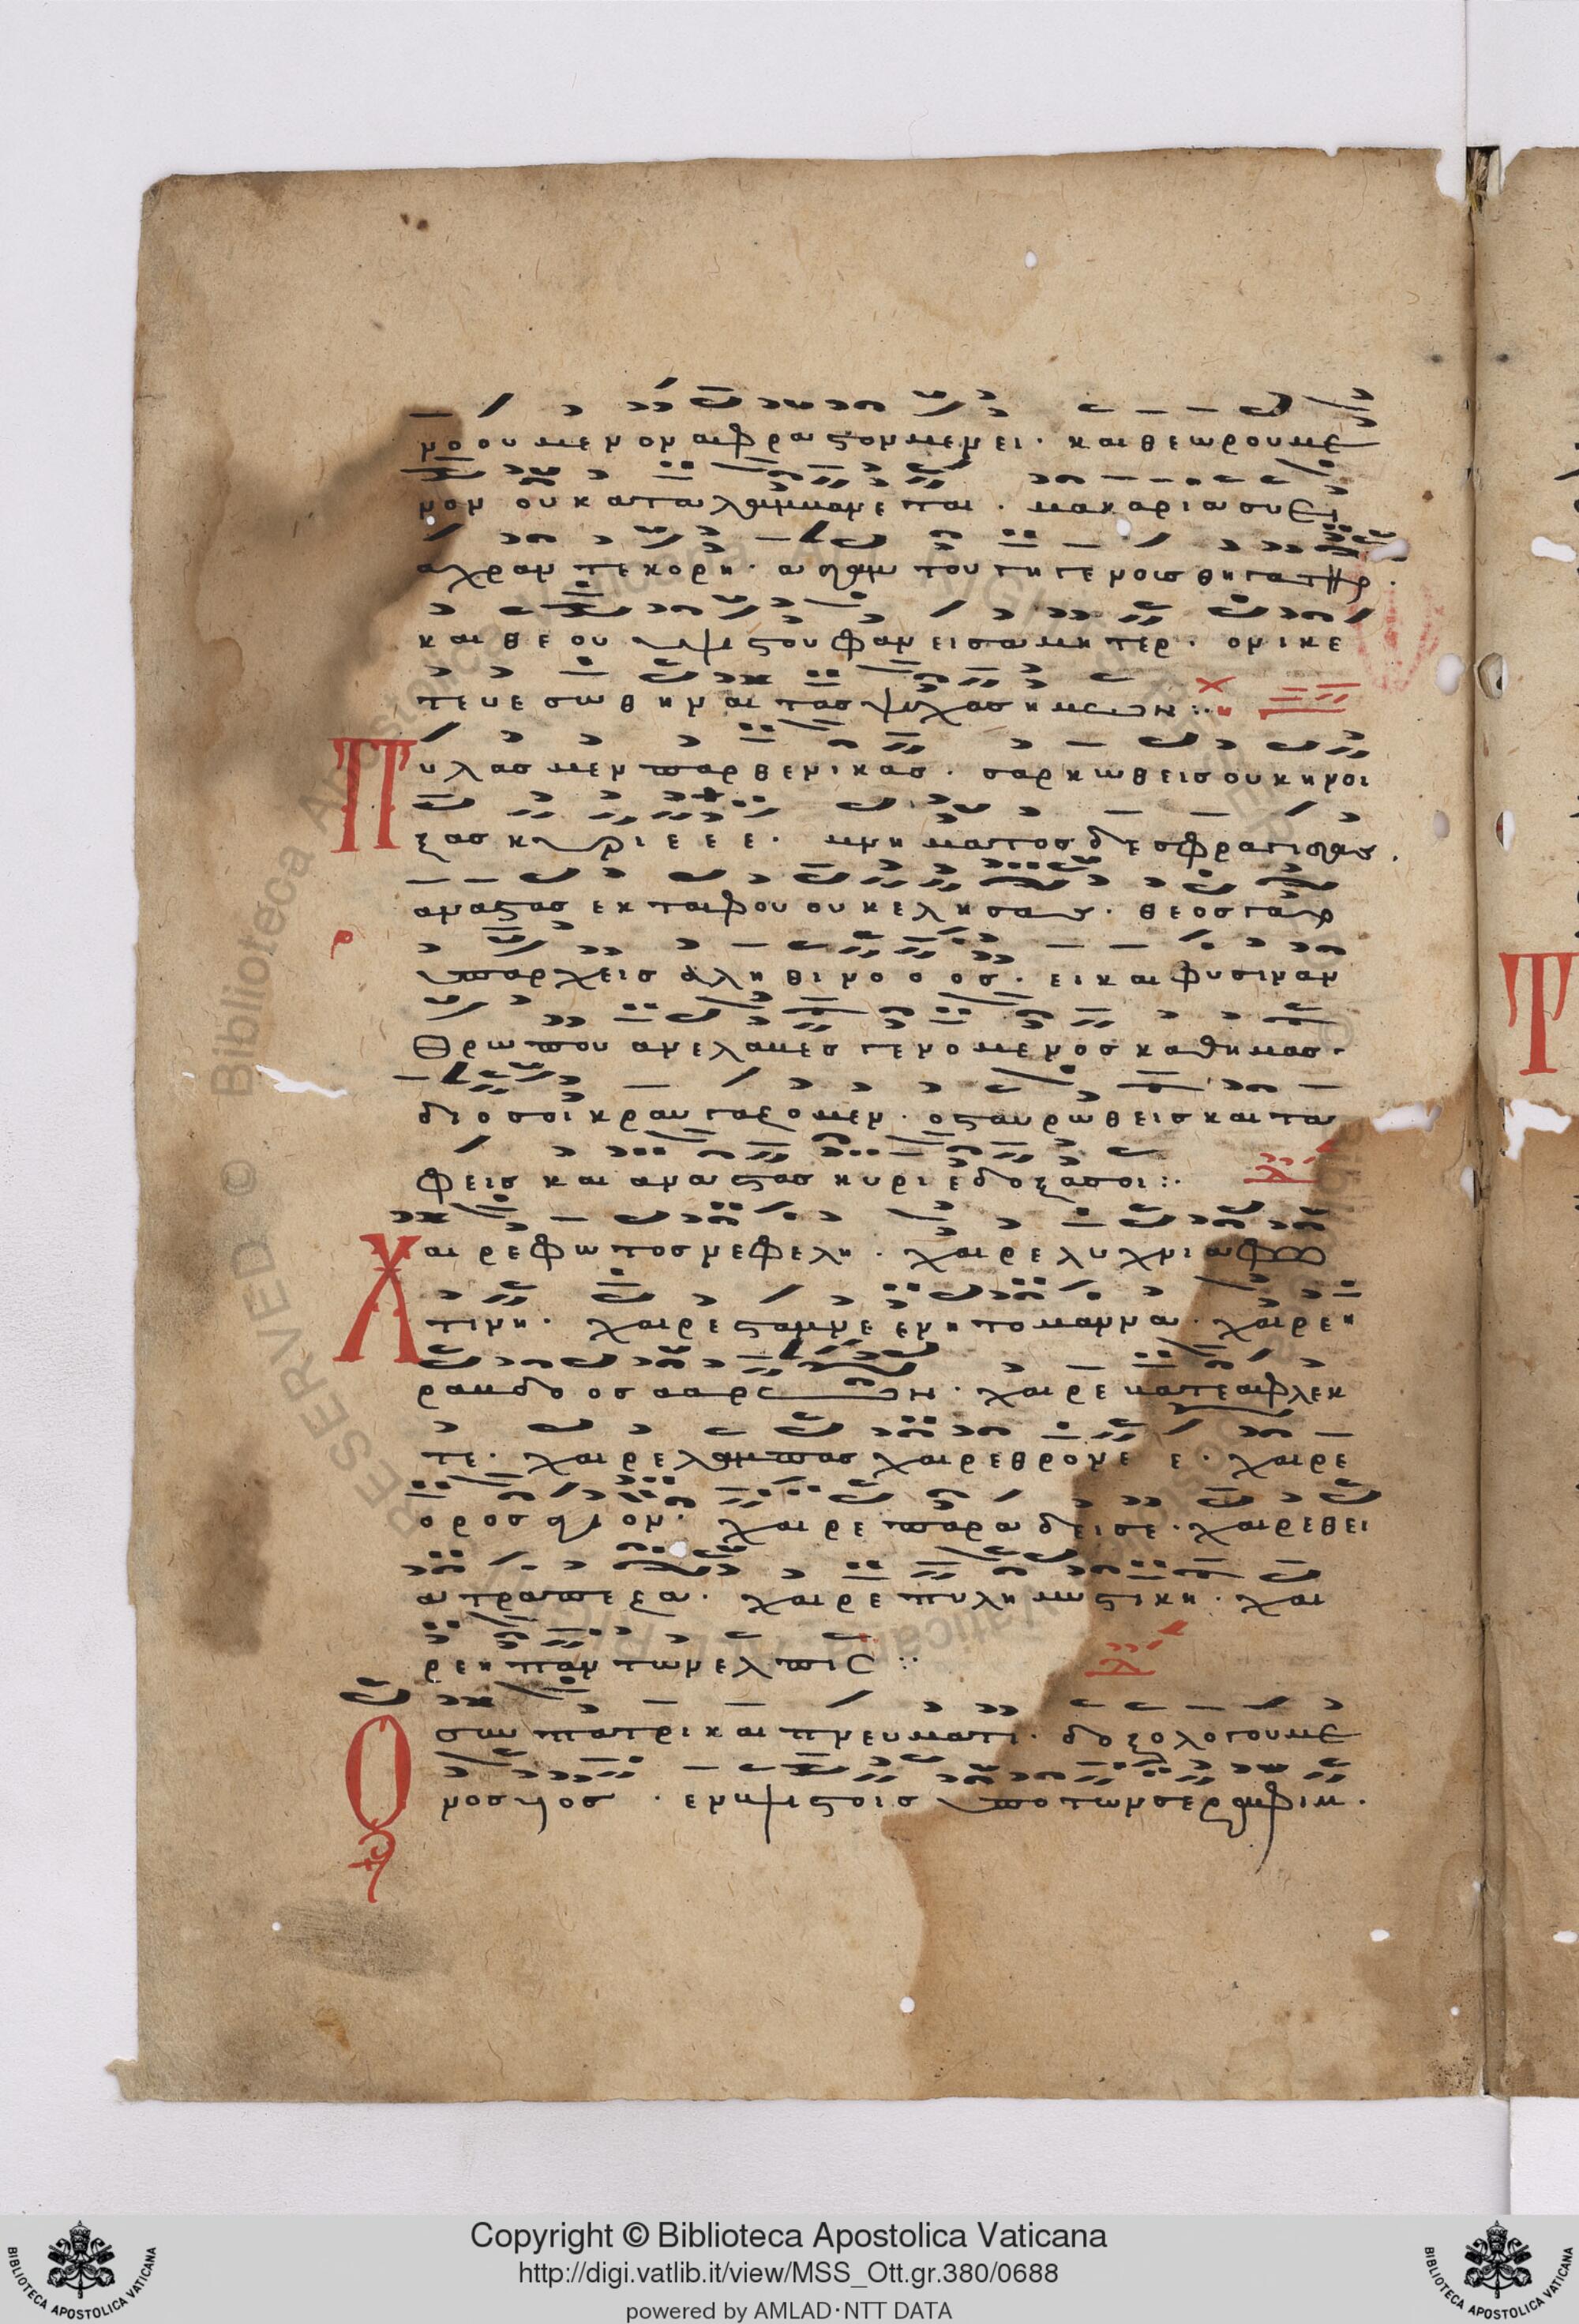 νοουμενον αφραστον μενει · και θεωρουμε
νον ου καταλαμβανεται · μακαρια συ ει
αχραντε κορη · αδαμ του γηγενους θυγατηρ ·
και θεου υψιστου φανεισα μητερ · ον ικε
τευε σωθηναι τας ψυχας ημων ::
Πυλας μεν παρθενικας · σαρκωθεις ουκ ηνοι
ξας κυριεεε · μνηματος δε σφραγιδας ·
αναστας εκ ταφου ου κεκλεισας · θεος γαρ
υπαρχεις αληθινοοος · ει και φυσιν αν
θρωπου ανελαβες γενομενος καθ ημας ·
διο σοι κραυγαζομεν · ο σταυρωθεις και τα
φεις και αναστας κυριε δοξα σοι :·
Χαιρε φωτος νεφελη · χαιρε λυχνια φω
τινη · χαιρε σταμνε εν η το μαννα · χαιρε η
ραβδοος ααρων · χαιρε βατε αφλεκ
τε · χαιρε λαμπας χαιρε θρονε ε · χαιρε
ορος αγιον · χαιρε παραδεισε · χαιρε θει
α τραπεζα · χαιρε πυλη μυστικη · χαι
ρε η παντων ελπις ::
Ο συν πατρι και πνευματι · δοξολογουμε
νος υιος · εν υψιστοις υπο των σεραφιμ ·
Copyright © Biblioteca Apostolica Vaticana
http://digi.vatlib.it/view/MSS_Ott.gr.380/0688
powered by AMLAD·NTT DATA
BIBLIOTECA APOSTOLICA VATICANA
BIBLIOTECA APOSTOLICA VATICANA